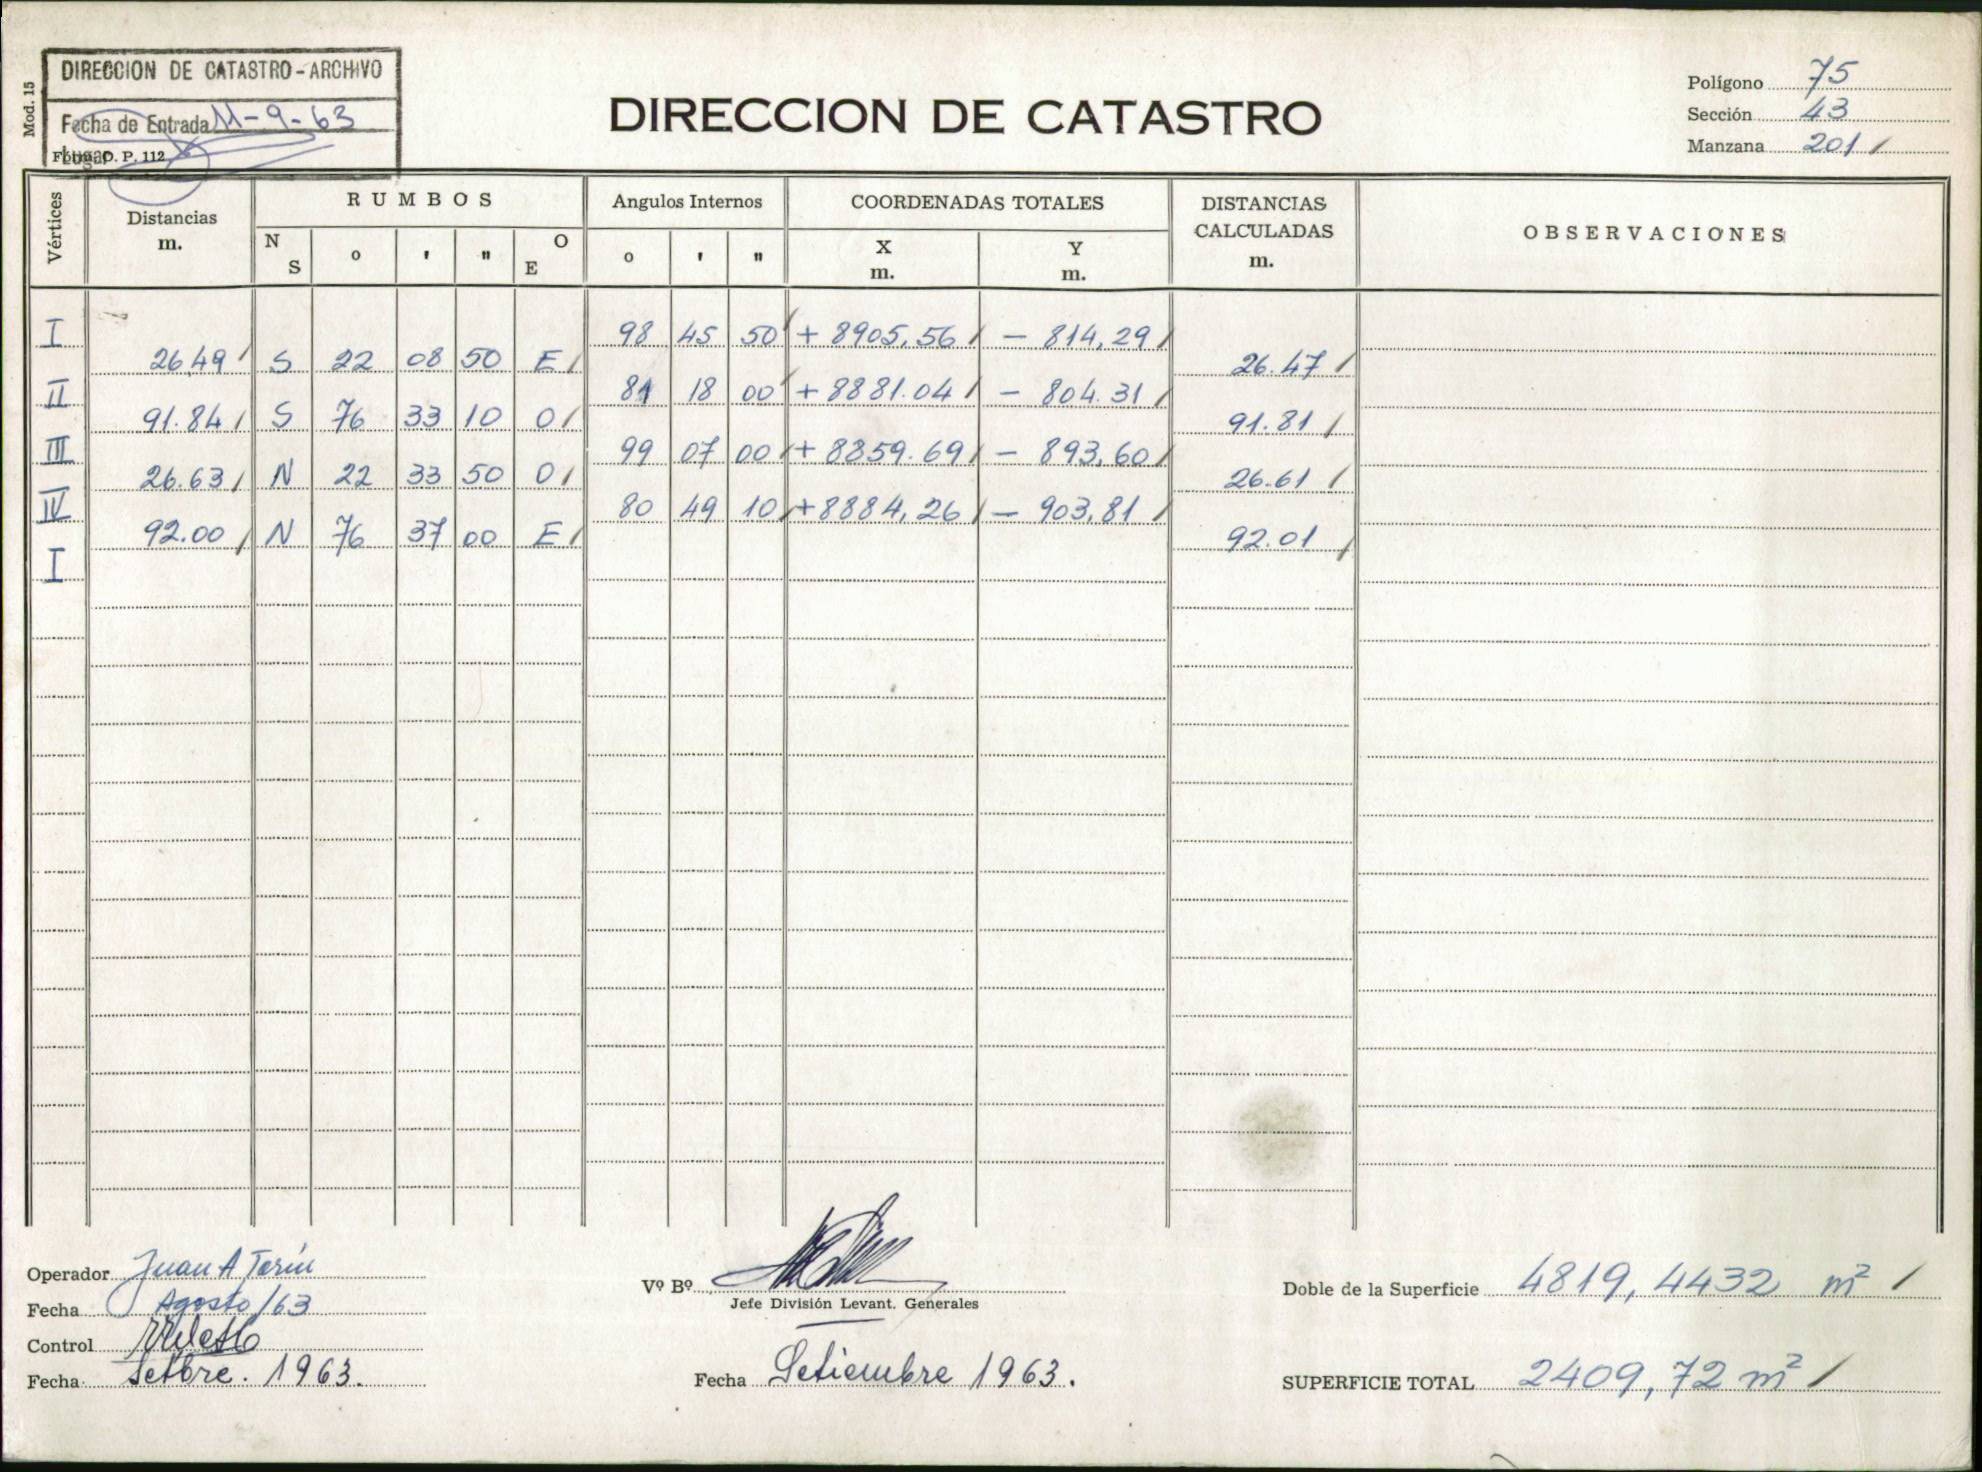 DIRECCION DE CATASTRO - ARCHIVO
Fecha de Entrada 11-9-63
Lugar
Mod. 15
Form. O. P. 112
DIRECCION DE CATASTRO
Polígono 75
Sección 43
Manzana 201 /
Vértices
Distancias m.
RUMBOS
N S ° ' " O E
Angulos Internos
° ' "
COORDENADAS TOTALES
X m. Y m.
DISTANCIAS CALCULADAS m.
OBSERVACIONES
I 98 45 50 / + 8905,56 / - 814,29 /
26,49 / S 22 08 50 E / 26.47 /
II 81 18 00 / + 8881.04 / - 804.31 /
91.84 / S 76 33 10 O / 91.81 /
III 99 07 00 / + 8859.69 / - 893,60 /
26.63 / N 22 33 50 O / 26.61 /
IV 80 49 10 / + 8884,26 / - 903,81 /
92.00 / N 76 37 00 E / 92.01 /
I
Operador Juan A Terín
Fecha Agosto/63
Control
Fecha Setbre. 1963.
Vº Bº
Jefe División Levant. Generales
Fecha Setiembre 1963.
Doble de la Superficie 4819,4432 m² /
SUPERFICIE TOTAL 2409,72 m² /